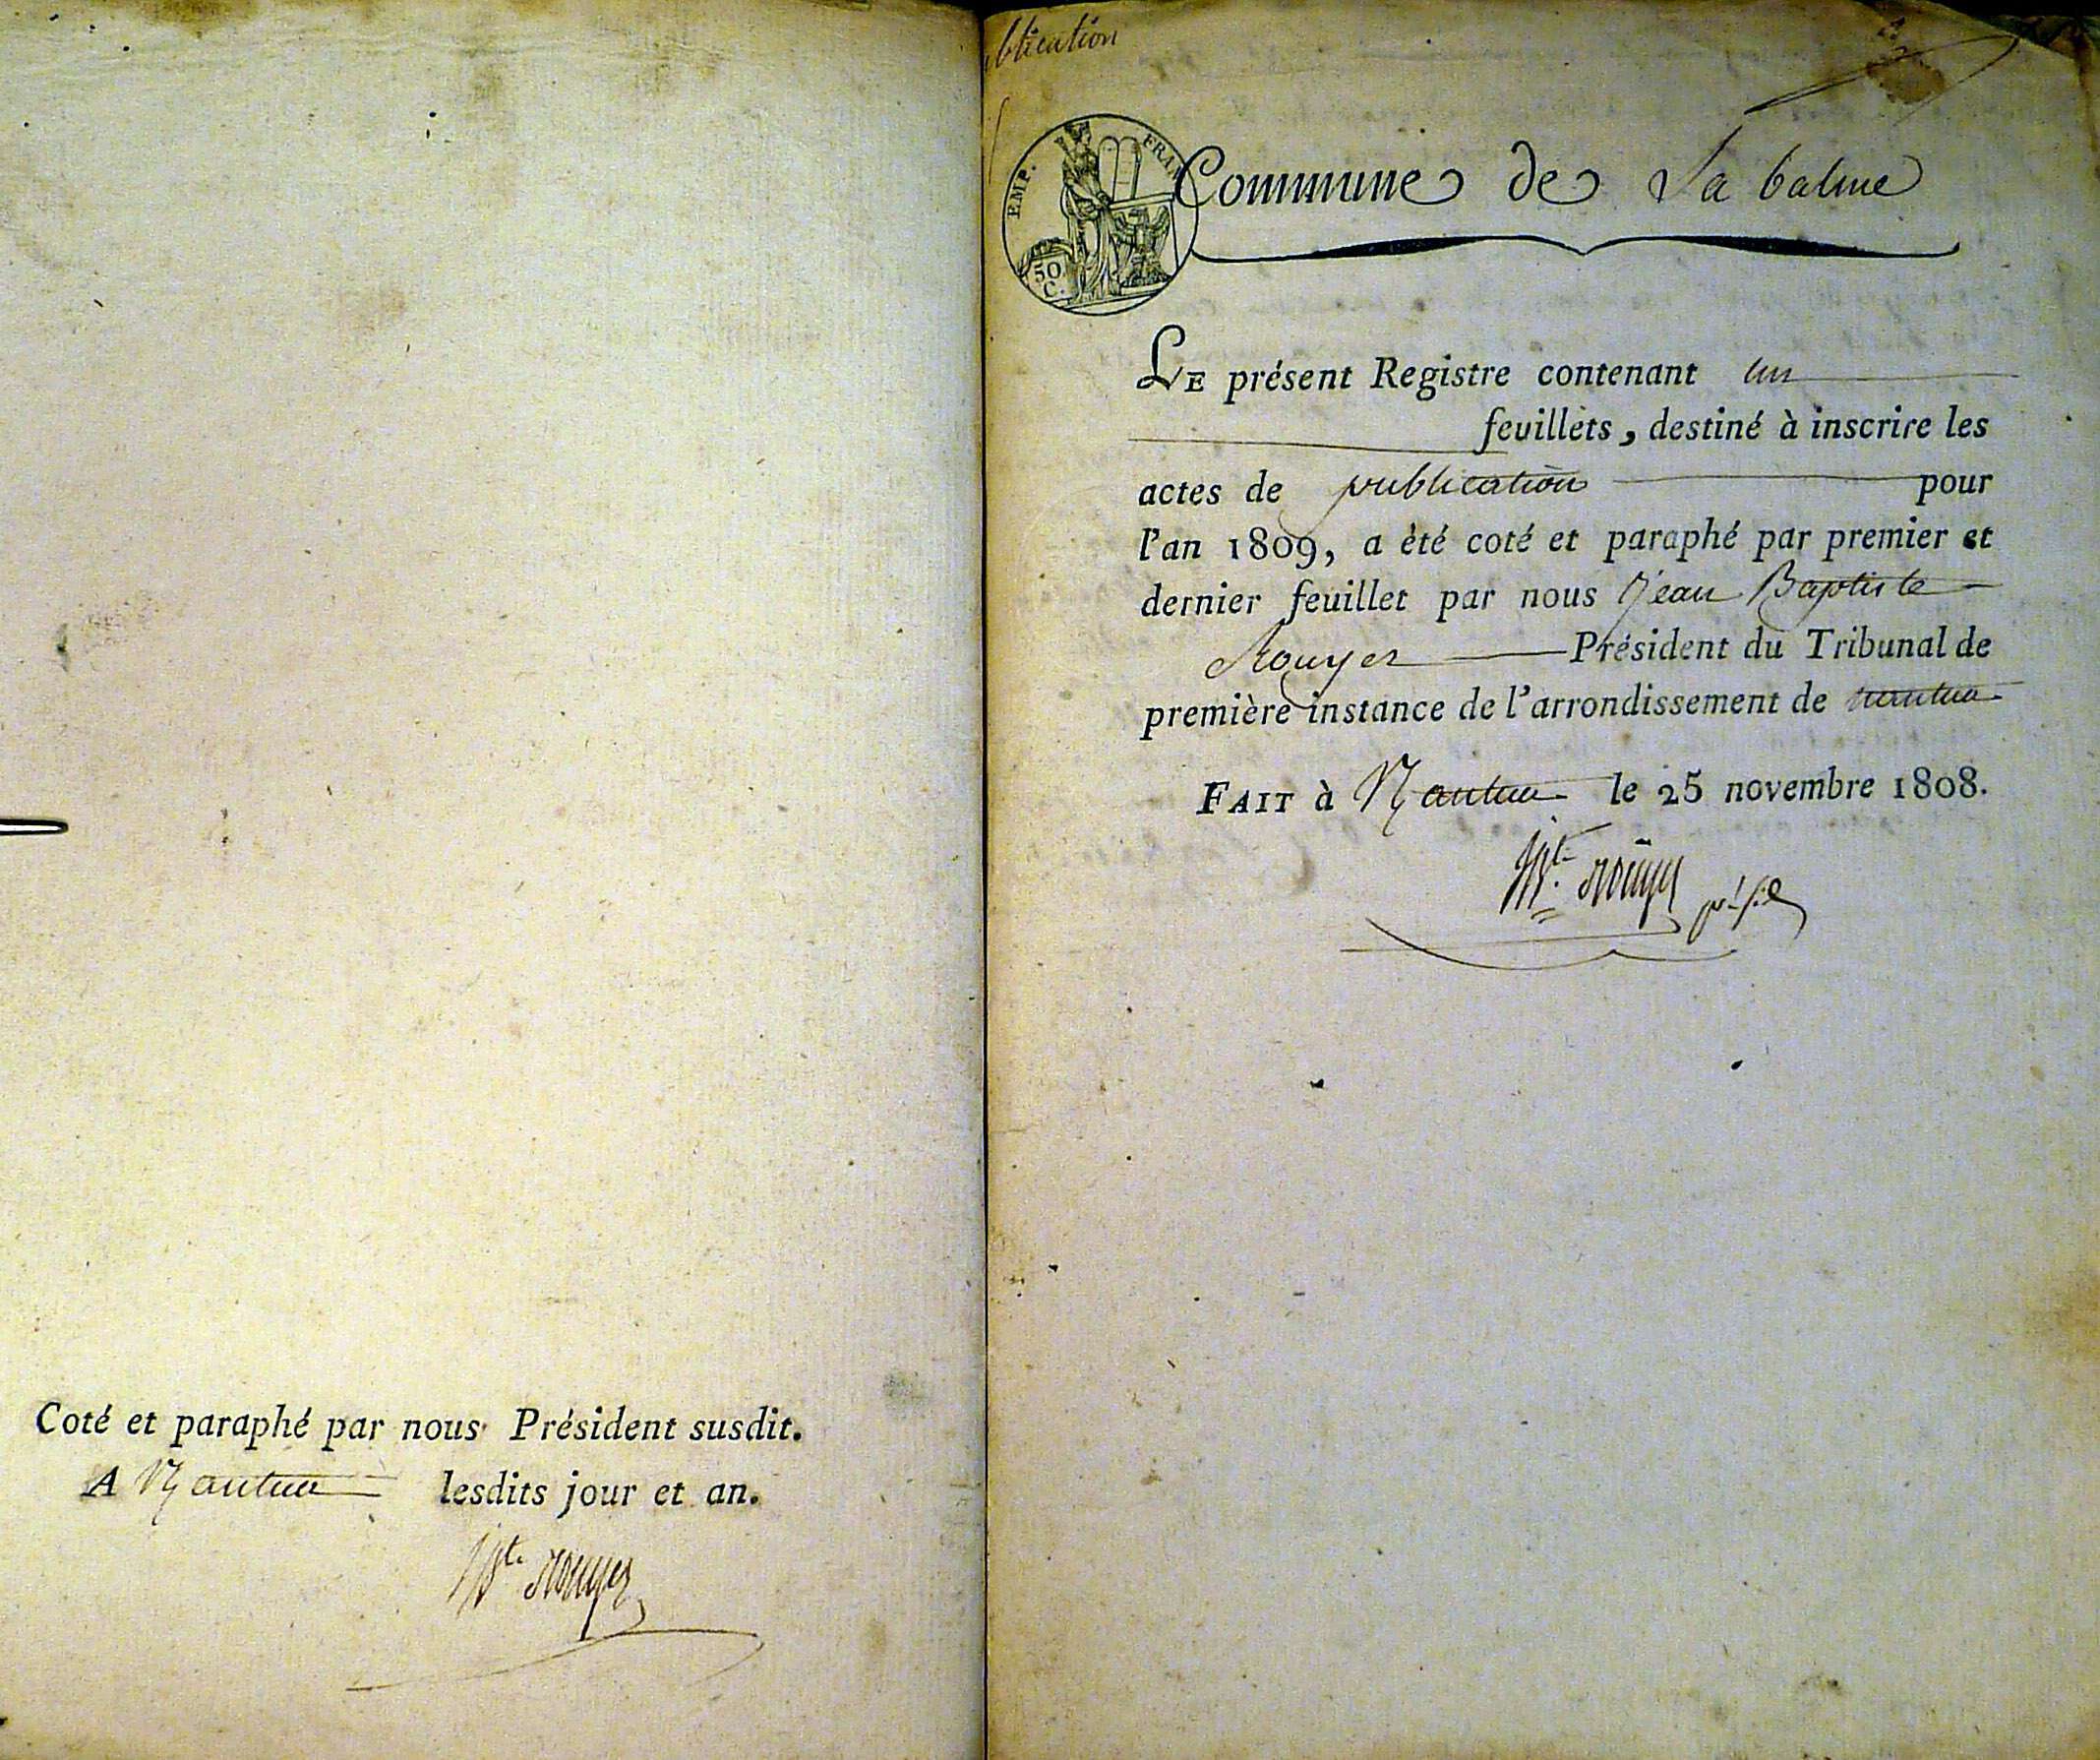 Coté et paraphé par nous Président susdit.
A Nantua lesdits jour et an.
Jn Bte. Rouyer
blication
EMP. FRAN
50
C.
Commune de La balme
LE présent Registre contenant un
feuillets, destiné à inscrire les
actes de publication pour
l'an 1809, a été coté et paraphé par premier et
dernier feuillet par nous Jean Baptiste
Rouyer Président du Tribunal de
première instance de l'arrondissement de nantua
FAIT à Nantua le 25 novembre 1808.
Bte. Rouyer présid